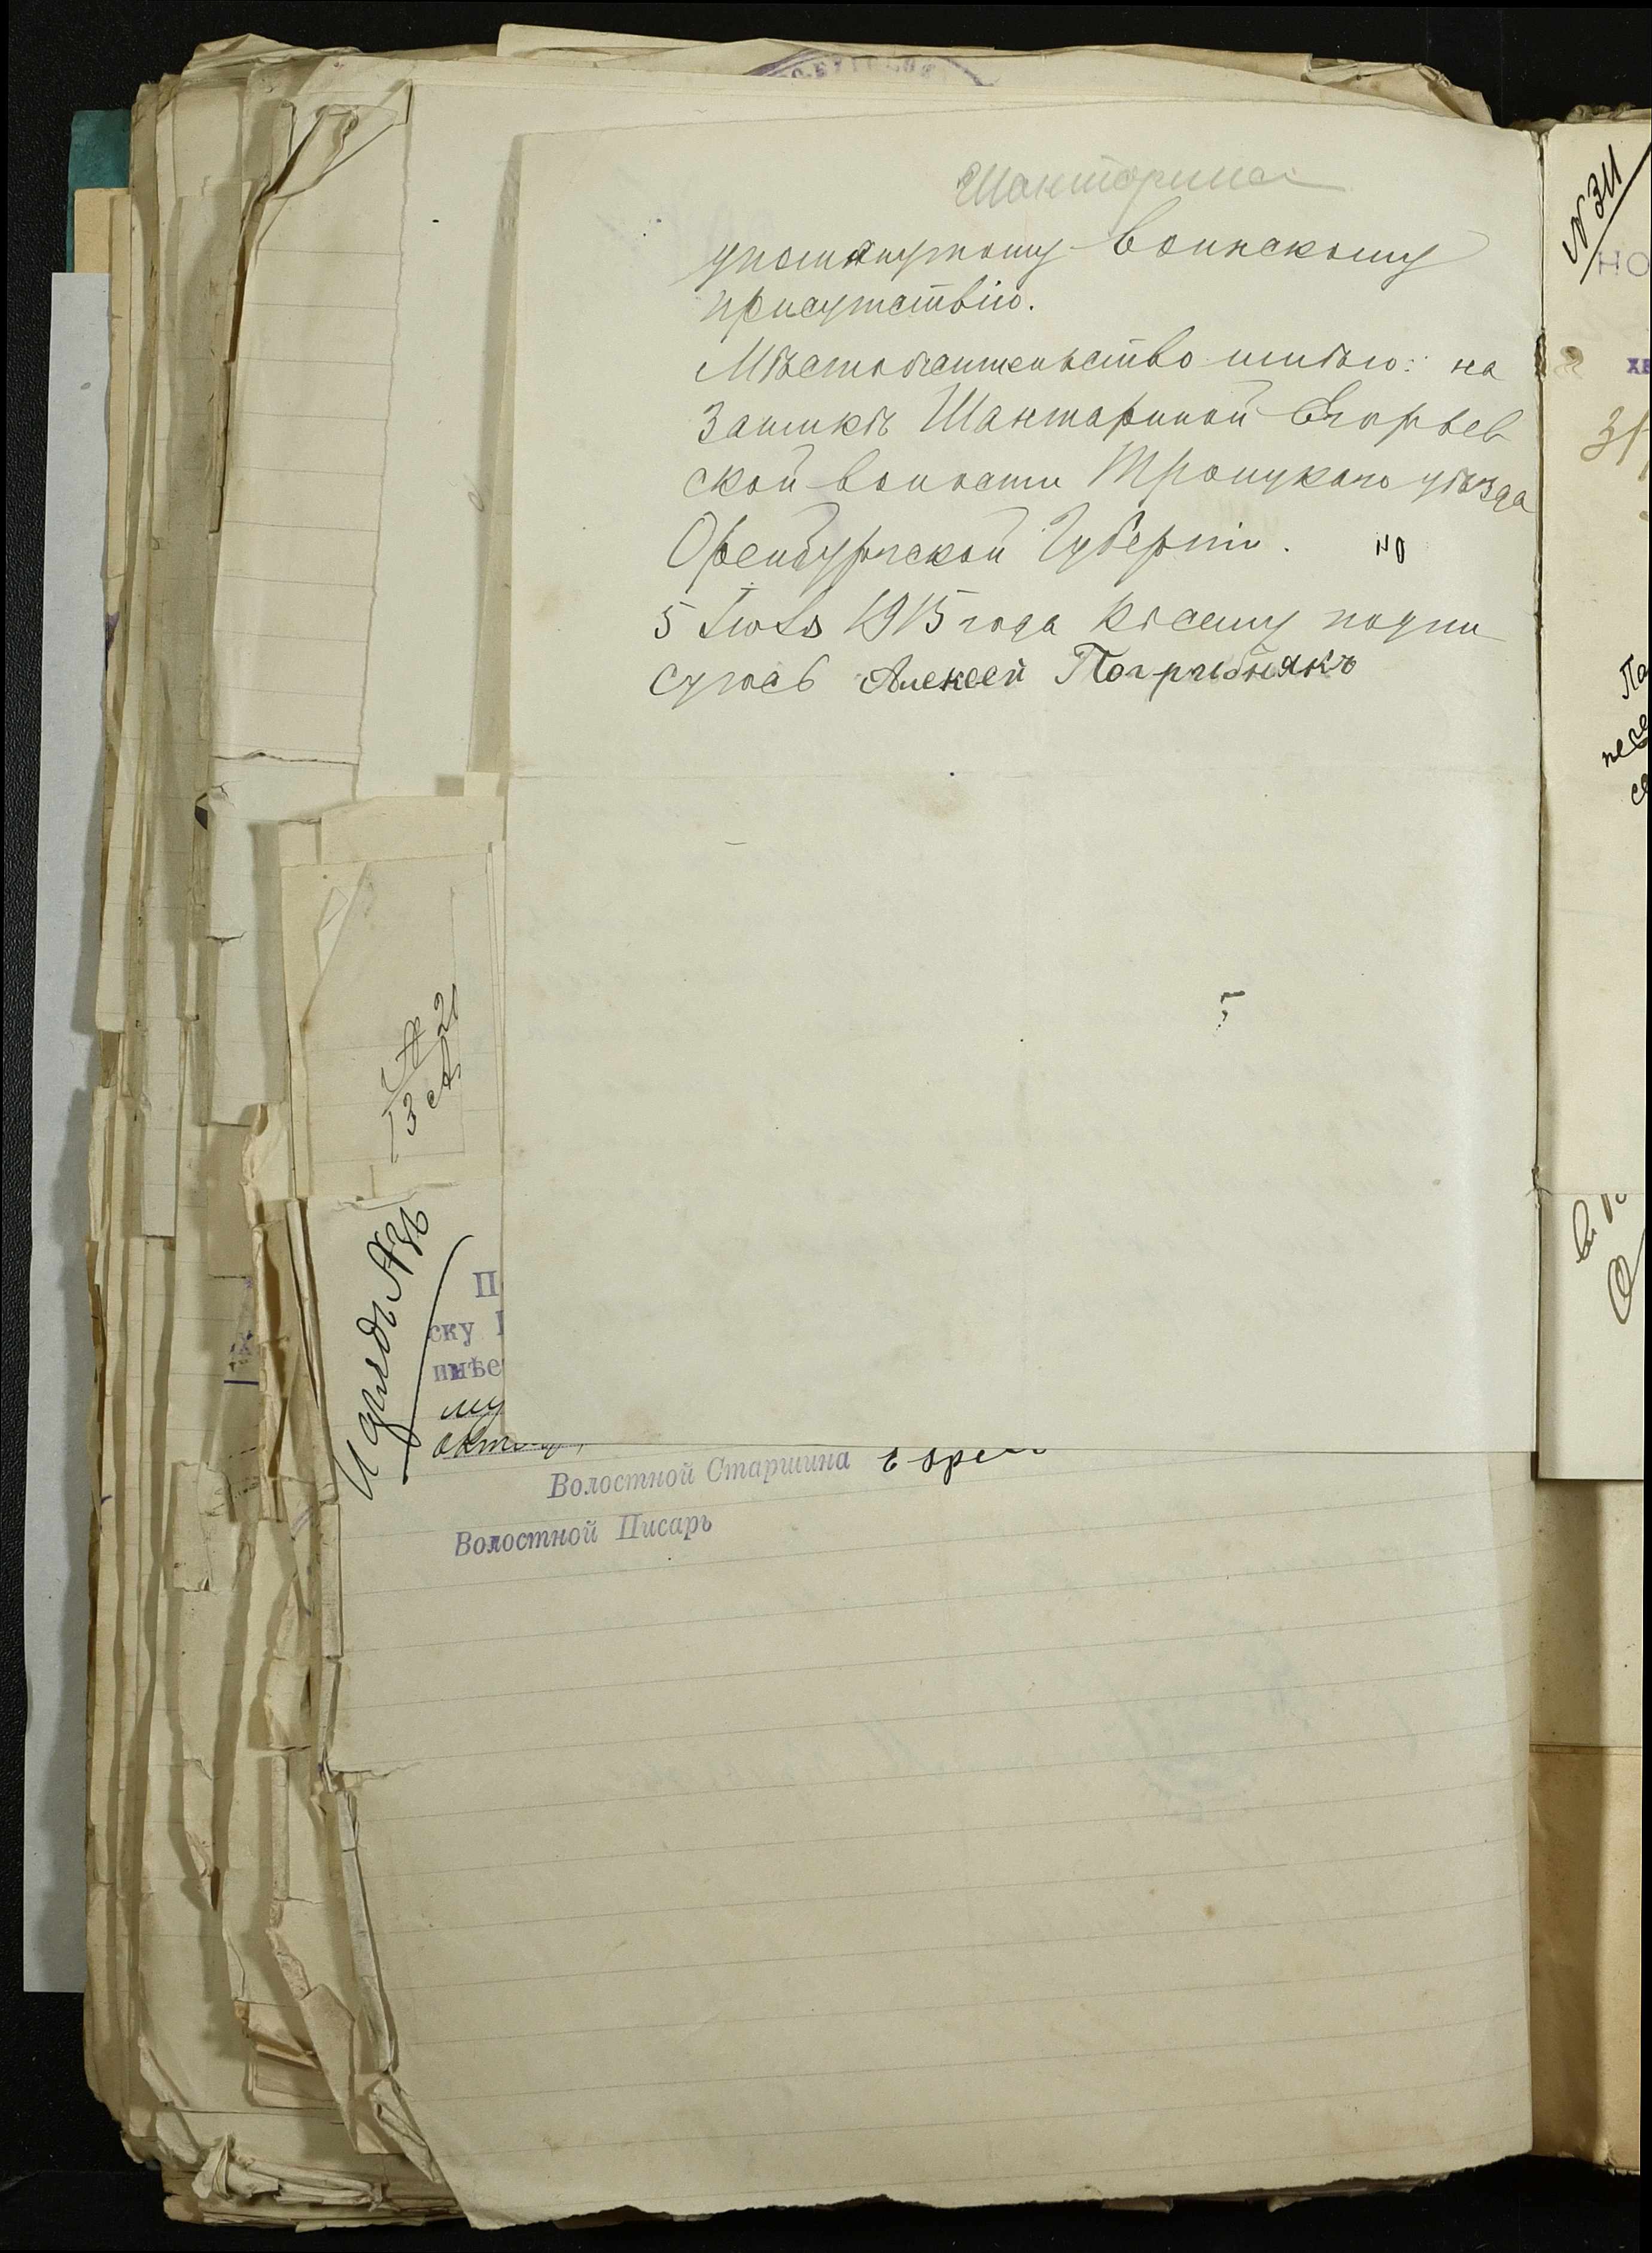 Шантарина
упомянутому воинскому
присутствію.
Мѣстожительство имѣю: на
Заимкѣ Шантариной Егорьев
ской волости Троицкаго уѣзда
Оренбургской Губерніи.
5 Іюля 1915 года къ сему подпи
суюсь Алексей Погрибнякъ
№ 21
№ 311
НО
Па
П
ску
инѣе
му
Волостной Старшина
Волостной Писарь